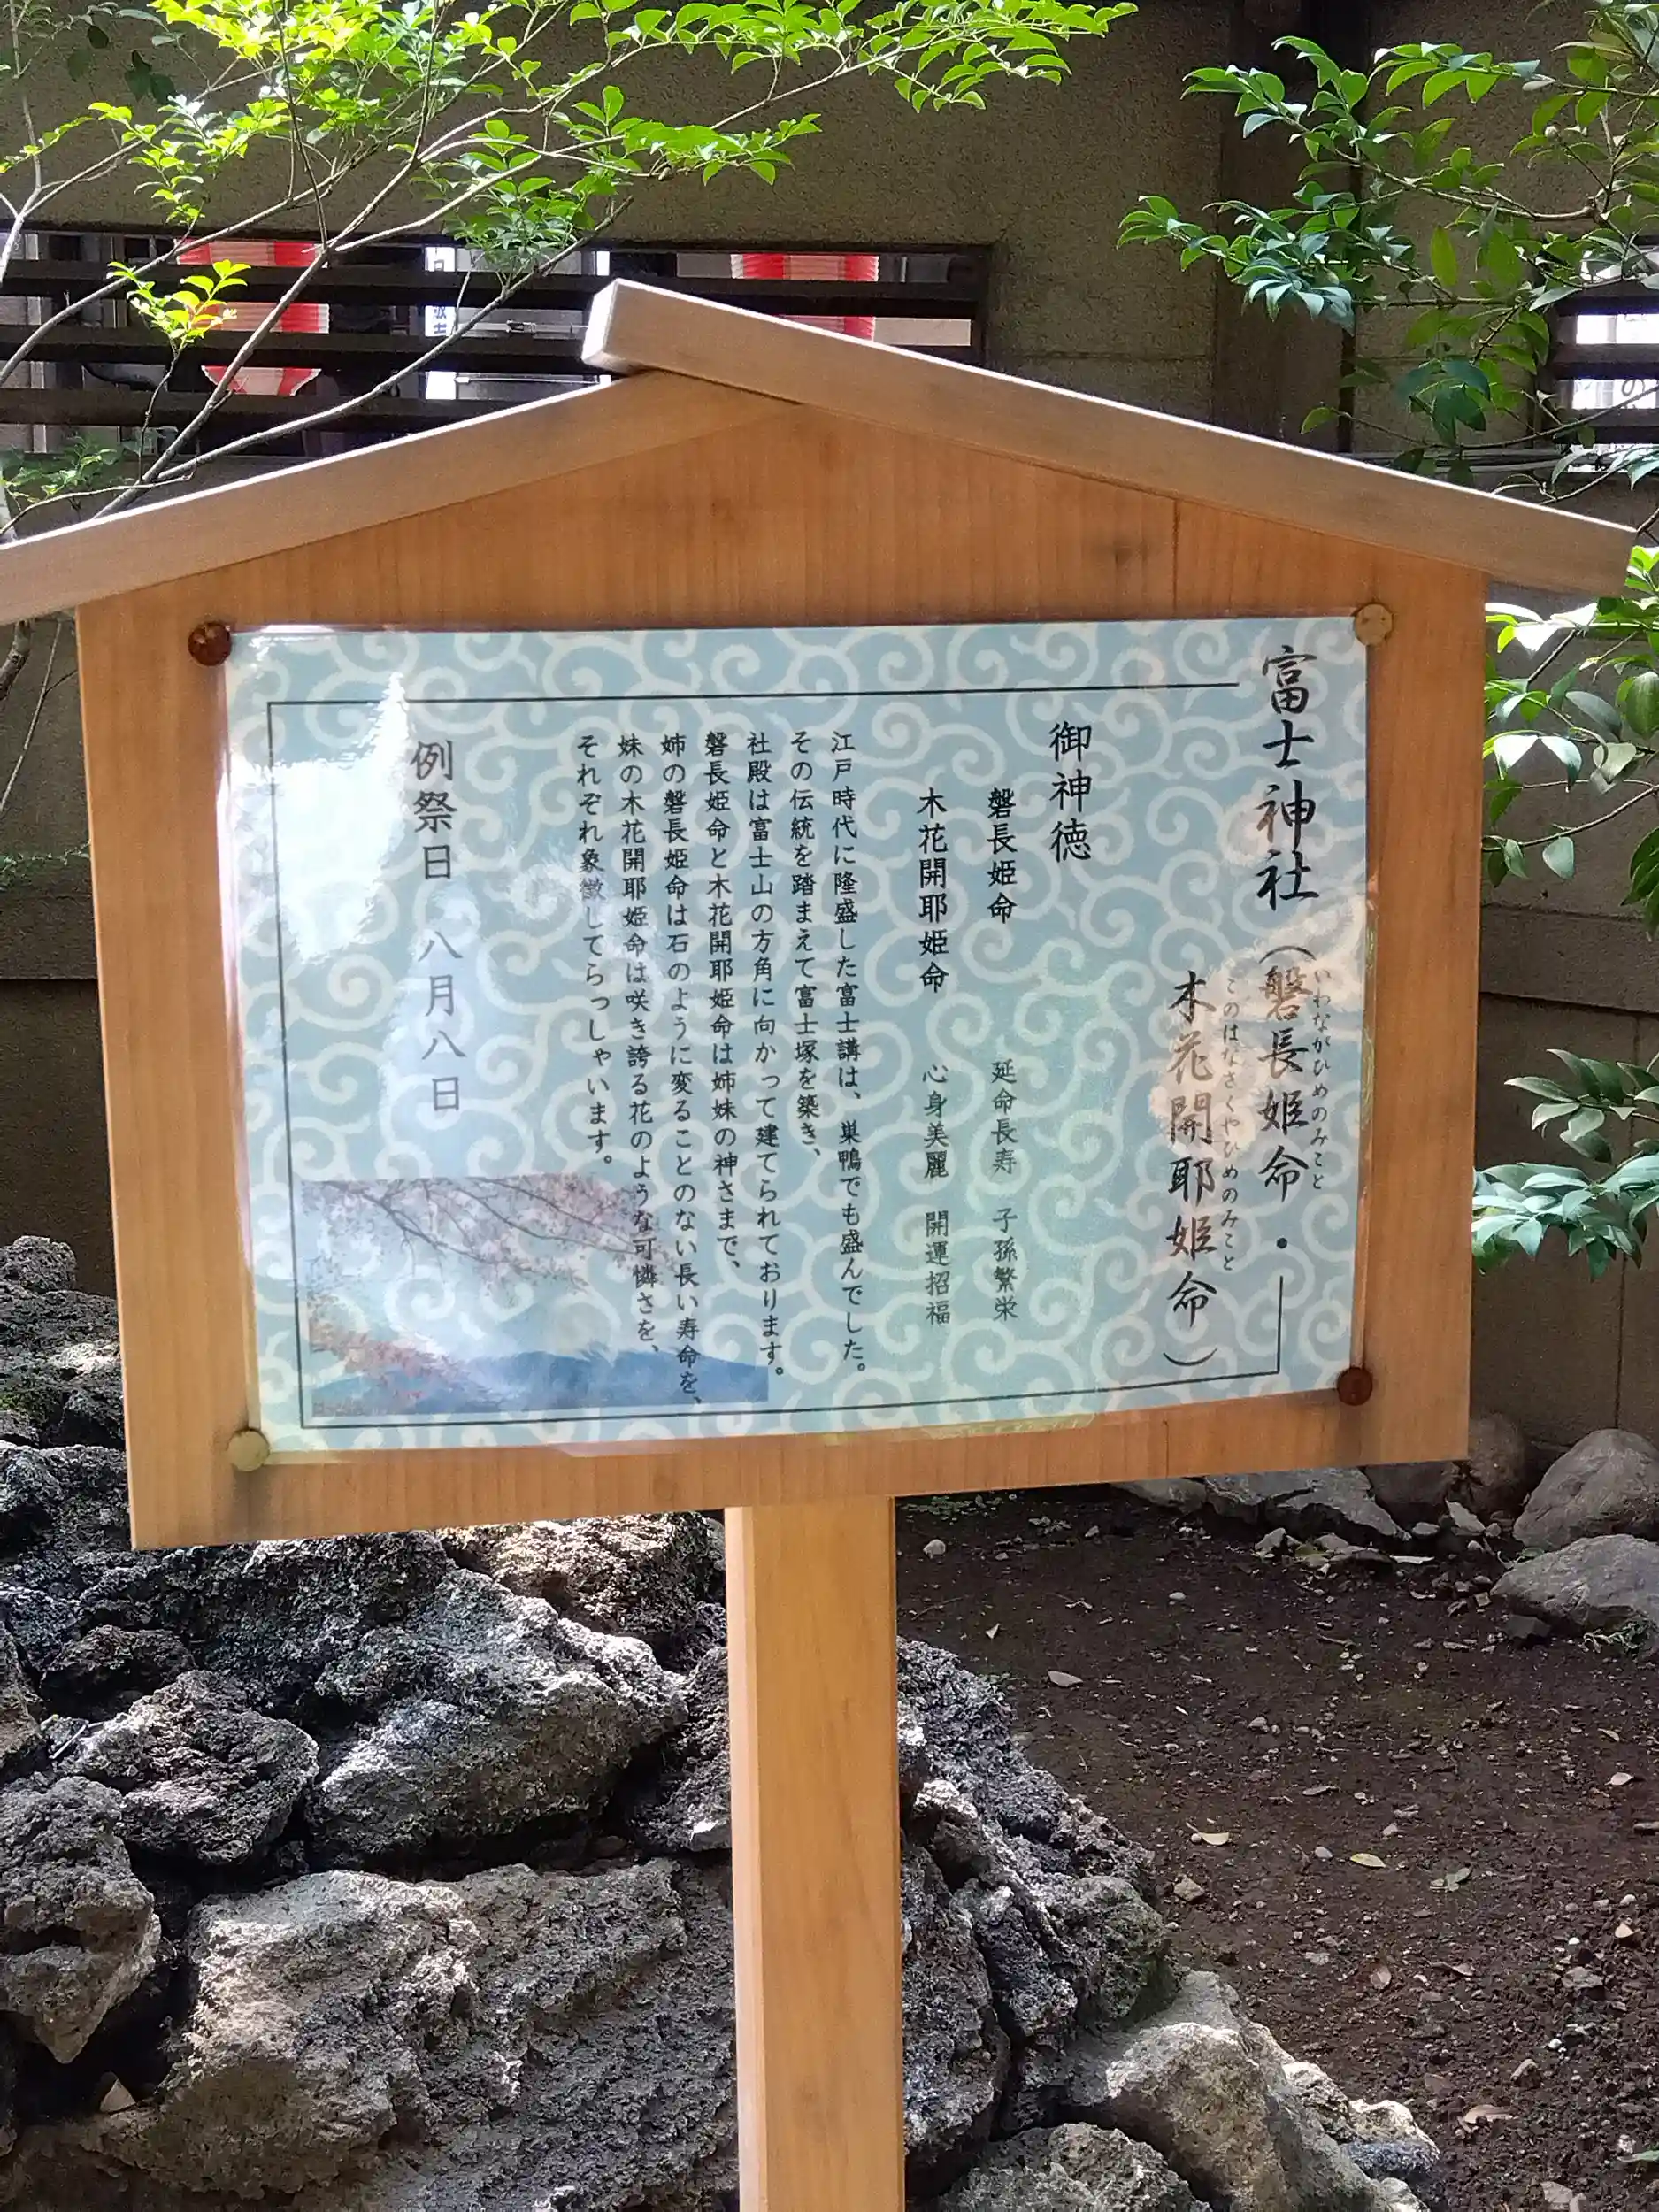 富士神社（磐長姫命・
いわながひめのみこと
木花開耶姫命）
このはなさくやひめのみこと
御神徳
磐長姫命　延命長寿　子孫繁栄
木花開耶姫命　心身美麗　開運招福
江戸時代に隆盛した富士講は、巣鴨でも盛んでした。
その伝統を踏まえて富士塚を築き、
社殿は富士山の方角に向かって建てられております。
磐長姫命と木花開耶姫命は姉妹の神さまで、
姉の磐長姫命は石のように変ることのない長い寿命を、
妹の木花開耶姫命は咲き誇る花のような可憐さを、
それぞれ象徴してらっしゃいます。
例祭日　八月八日